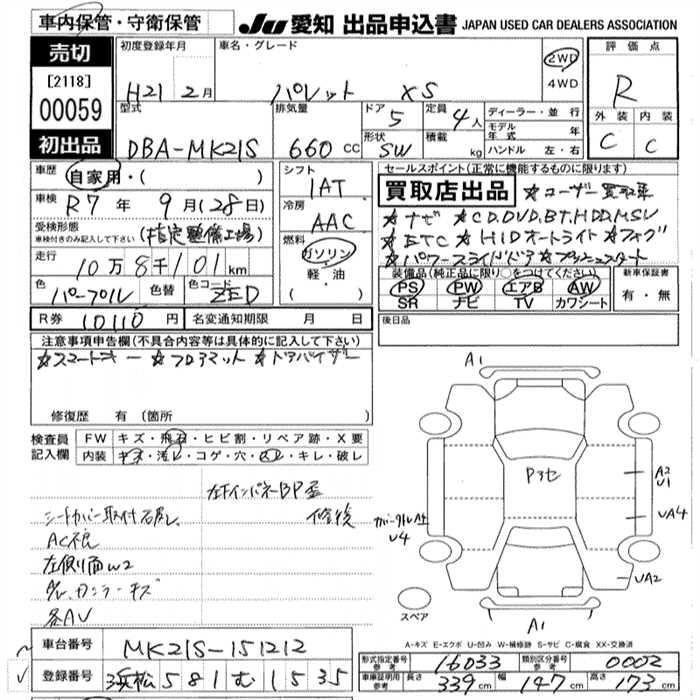 車内保管・守衛保管
JU 愛知 出品申込書 JAPAN USED CAR DEALERS ASSOCIATION
売切
[2118]
00059
初出品
初度登録年月
H21 2月
車名・グレード
パレット XS
2WD
4WD
評価点
R
外装 内装
C C
型式
DBA-MK21S
排気量
660 cc
ドア
5
定員
4人
形状
SW
積載
kg
ディーラー・並行
モデル年式 年
ハンドル 左・右
車歴
自家用・( )
車検
R7年 9月(28日)
受検形態
車検付きのみ記入して下さい
(指定整備工場)
走行
10万8千101km
色
パープル
色替
色コード
ZED
シフト
IAT
冷房
AAC
燃料
ガソリン
軽・油
( )
セールスポイント(正常に機能するものに限ります)
買取店出品 ★ユーザー買取車
★ナビ ★CD,DVD,BT,HDD,MSV
★ETC ★HIDオートライト ★フォグ
★パワースライドドア ★プッシュスタート
装備品(純正品に限り○をつけてください)
PS PW エアB AW
SR ナビ TV カワシート
新車保証書
有・無
R券 10110円
名変通知期限 月 日
後日品
注意事項申告欄(不具合内容等は具体的に記入して下さい)
★スマートキー ★フロアマット ★ドアバイザー
修復歴 有(箇所
検査員
記入欄
FW キズ・飛石・ヒビ割・リペア跡・X要
内装 キズ・汚レ・コゲ・穴・スレ・キレ・破レ
左下インパネBP歪
修後
シートカバー取付
AC不良
左側面W2
各AU
A1
Pヌセ
A2
U1
UA4
UA2
U4
A1
スペア
A-キズ E-エクボ U-凹み W-補修跡 S-サビ C-腐食 XX-交換済
車台番号
MK21S-151212
登録番号
浜松 581 む 1535
形式指定番号
参考
16033
類別区分番号
参考
0002
車庫証明用
参考
長さ 339cm 幅 147cm 高さ 173cm